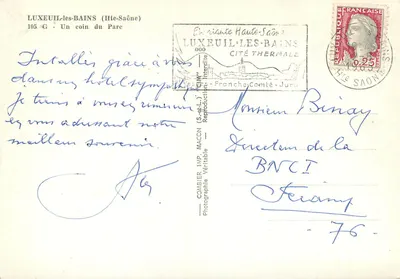 LUXEUIL-les-BAINS (Hte-Saône)
165 G - Un coin du Parc
Installés grâce à vous
dans un hôtel sympathique
Je tiens à vous remercier
en vous adressant notre
meilleur souvenir.
En riante Haute-Saône
LUXEUIL-LES-BAINS
CITÉ THERMALE
Franche-Comté - Jura
COMBIER IMP. MACON (S.-et-L.) "CIM"
Photographie Véritable - Reproduction
REPUBLIQUE FRANÇAISE
0,25
Monsieur
Directeur de la
BNCI
Fécamp
- 76 -